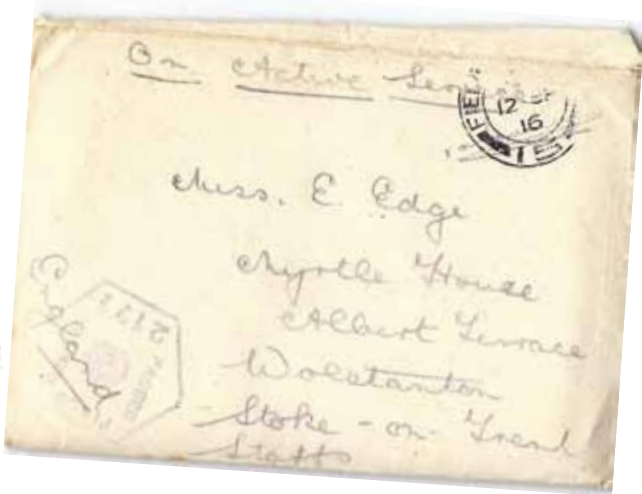 On Active Service
FIEL
12 SP
16
15
Miss. E Edge
Myrtle House
Albert Terrace
Wolstanton
Stoke-on-Trent
Staffs
England
PASSED
2172